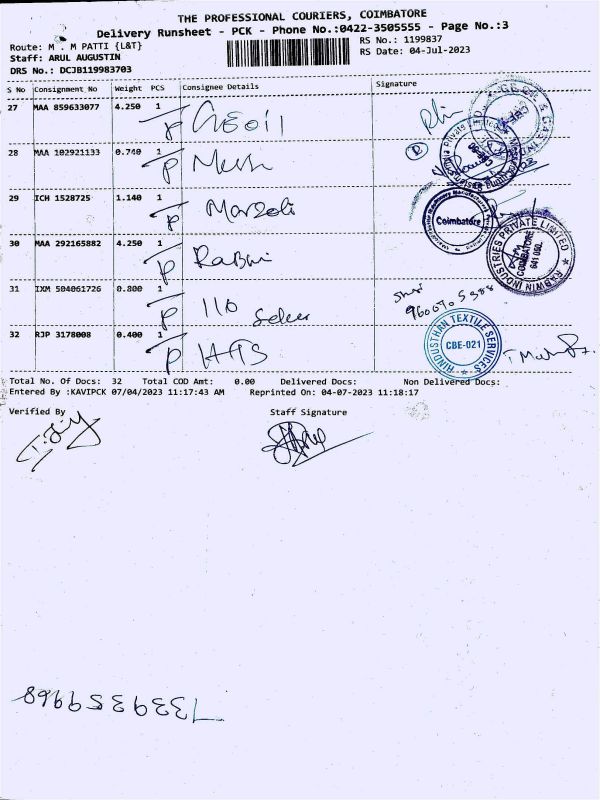 THE PROFESSIONAL COURIERS, COIMBATORE
Delivery Runsheet - PCK - Phone No.:0422-3505555 - Page No.:3
Route: M . M PATTI {L&T}
RS No.: 1199837
Staff: ARUL AUGUSTIN
RS Date: 04-Jul-2023
DRS No.: DCJB119983703
S No Consignment No Weight PCS Consignee Details Signature
27 MAA 859633077 4.250 1
P Geoil
28 MAA 102921133 0.740 1
P
29 ICH 1528725 1.140 1
P Marzoli
Coimbatore
30 MAA 292165882 4.250 1
P Rabwin
RABWIN INDUSTRIES PRIVATE LIMITED
COIMBATORE
641 050.
31 IXM 504061726 0.800 1
P
32 RJP 3178008 0.400 1
P HTS
HINDUSTHAN TEXTILE SERVICES
CBE-021
Total No. Of Docs: 32 Total COD Amt: 0.00 Delivered Docs: Non Delivered Docs:
Entered By :KAVIPCK 07/04/2023 11:17:43 AM Reprinted On: 04-07-2023 11:18:17
Verified By Staff Signature
7339359968